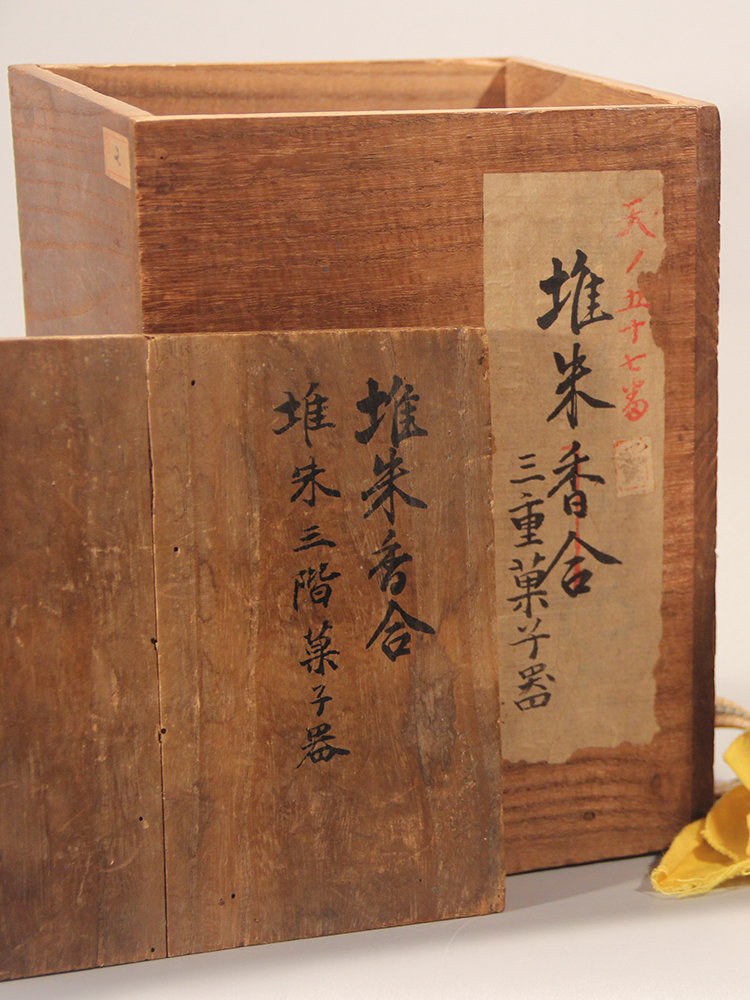 天ノ五十七番
堆朱香合
三重菓子器
堆朱香合
堆朱三階菓子器